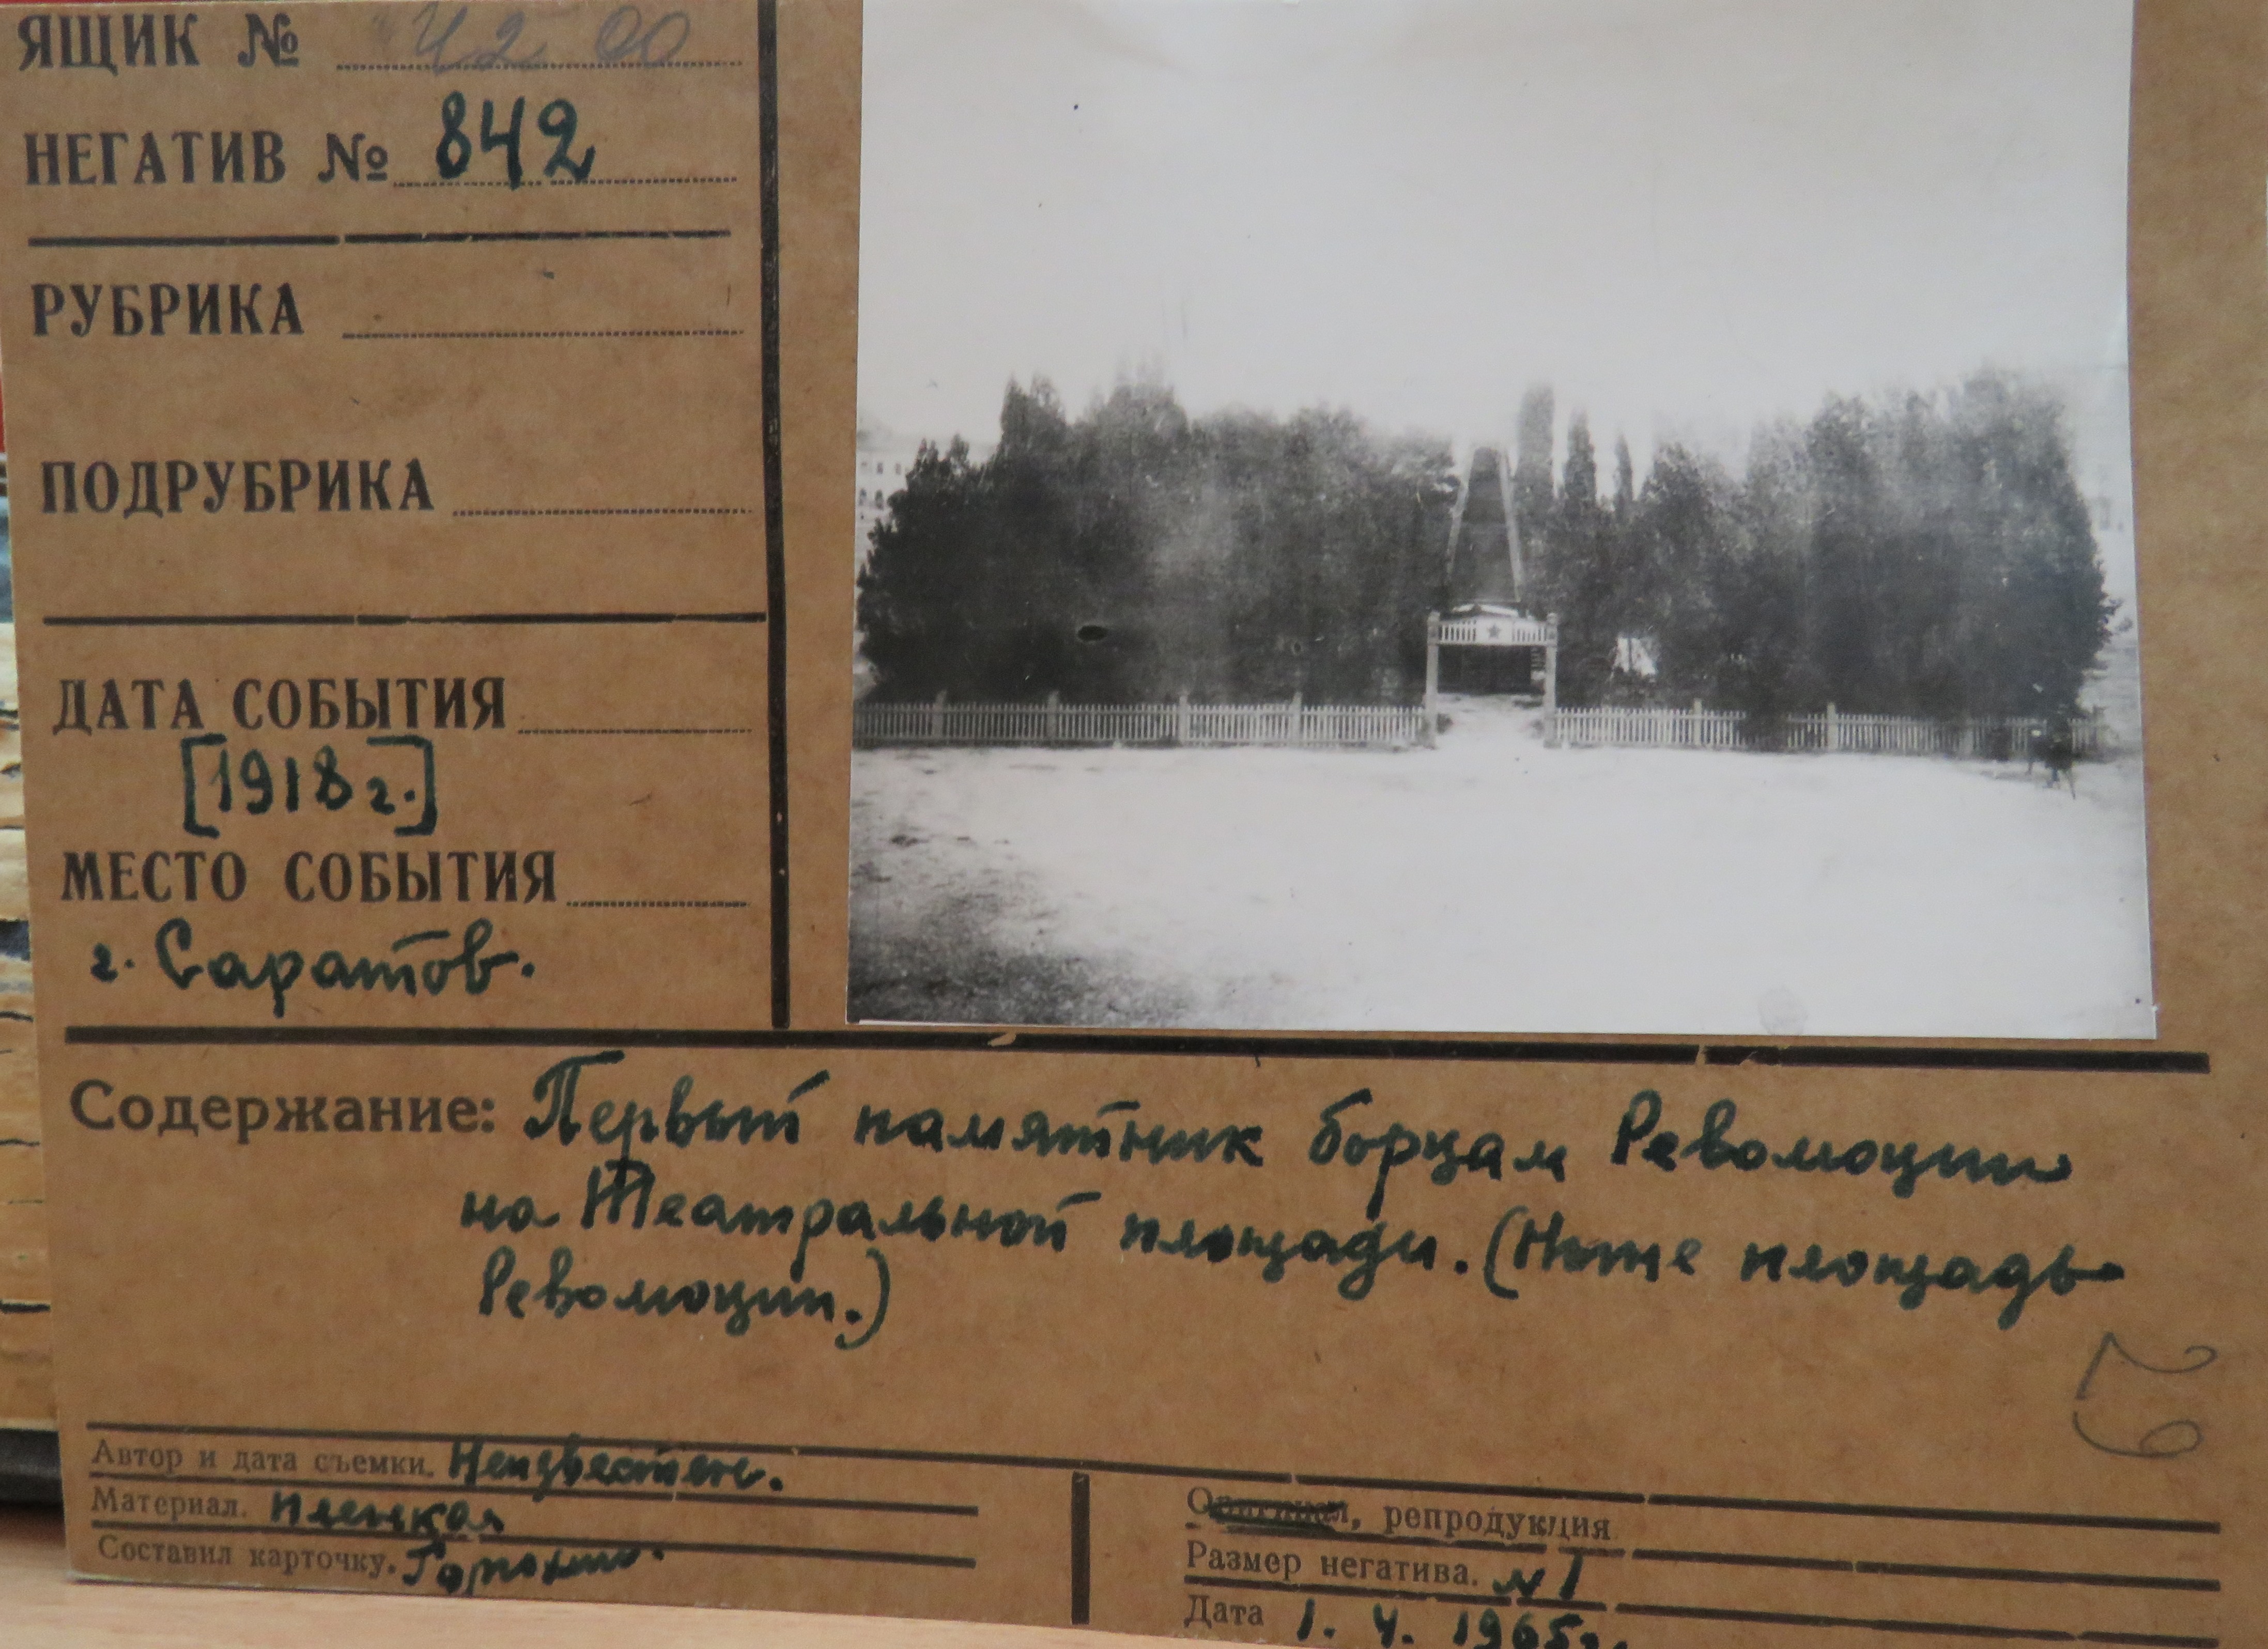 ЯЩИК №
НЕГАТИВ № 842
РУБРИКА
ПОДРУБРИКА
ДАТА СОБЫТИЯ
[1918 г.]
МЕСТО СОБЫТИЯ
г. Саратов.
Содержание: Первый памятник борцам Революции
на Театральной площади. (Ныне площадь
Революции.)
Автор и дата съемки. Неизвестен.
Материал. пленка
Составил карточку.
репродукция
Размер негатива. №1
Дата 1. 4. 1965г.